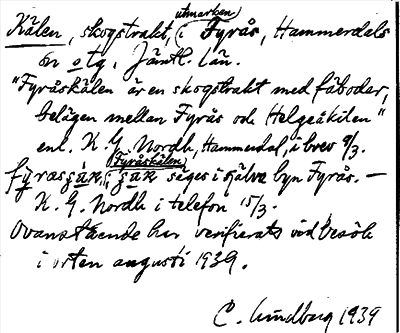 Kälen, skogstrakt, i utmarken Fyrås, Hammerdels
sn o tg. Jämtl. Län.
"Fyråskälen är en skogstrakt med fäbodar,
belägen mellan Fyrås och Helgeåkilen"
enl. K. G. Nordh, Hammerdal, i brev 9/3.
Fyråskälen
säges i själva byn Fyrås. —
K. G. Nordh i telefon 15/3.
Ovanstående har verifierats vid besök
i orten augusti 1939.
C. Lundberg 1939